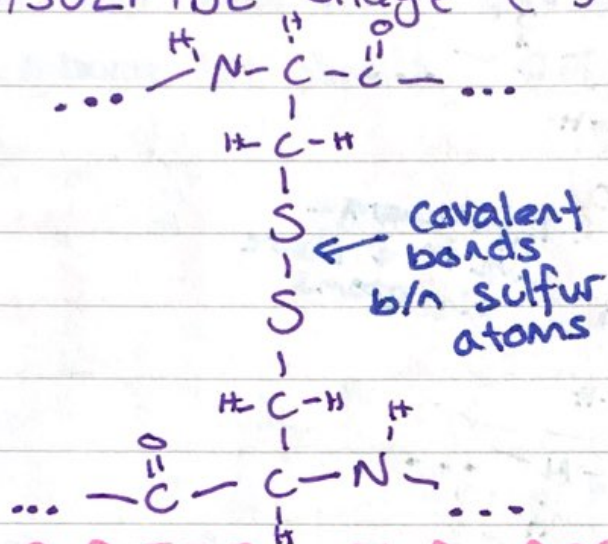 H H O
... N - C - C - ...
H - C - H
S
S
covalent
bonds
b/n sulfur
atoms
H - C - H H
O
... - C - C - N - ...
H